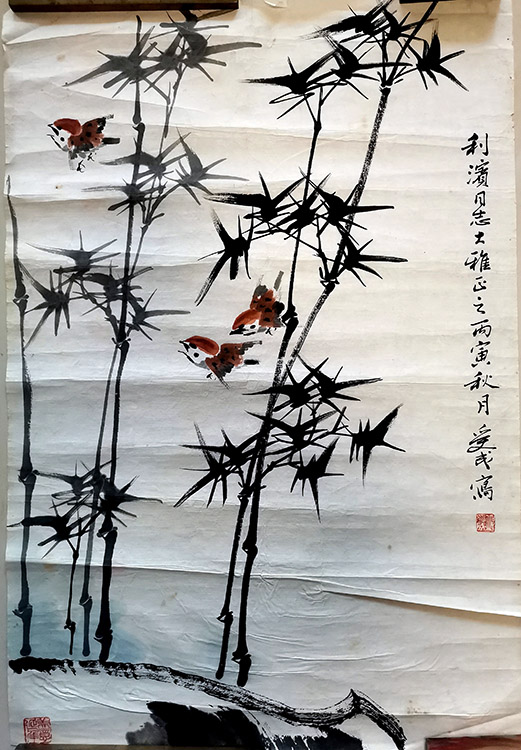 利濱同志大雅正之丙寅秋月受成寫